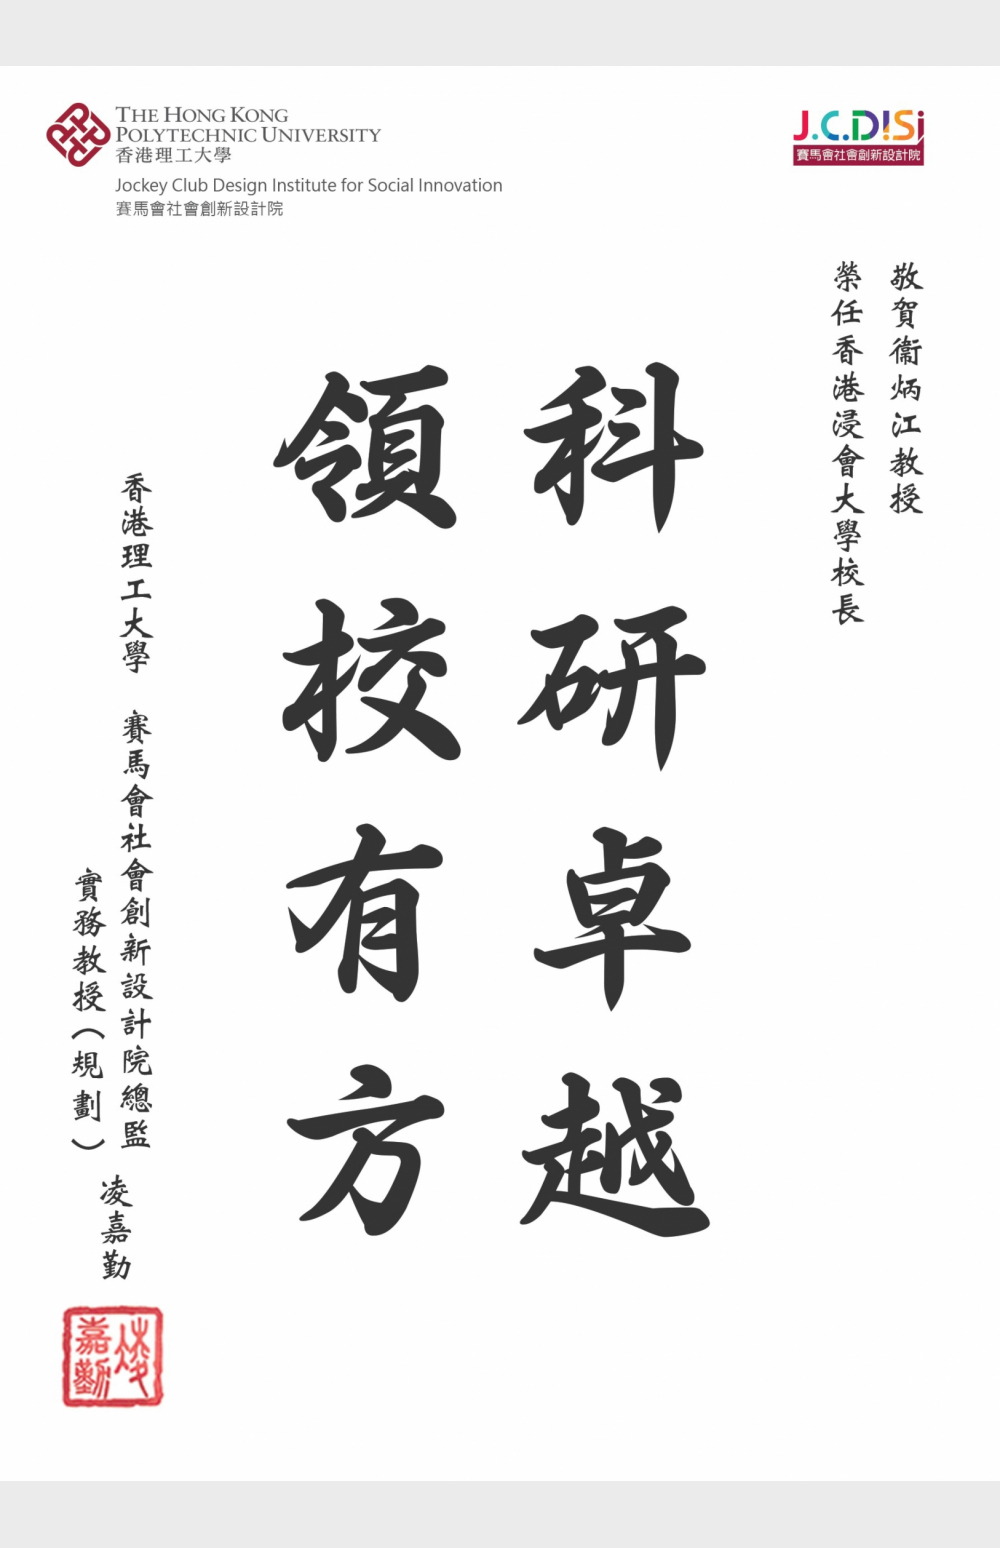 THE HONG KONG
POLYTECHNIC UNIVERSITY
香港理工大學
Jockey Club Design Institute for Social Innovation
賽馬會社會創新設計院
J.C.DISI
賽馬會社會創新設計院
敬賀衞炳江教授
榮任香港浸會大學校長
科研卓越
領校有方
香港理工大學 賽馬會社會創新設計院總監
實務教授（規劃）
凌嘉勤
凌嘉勤